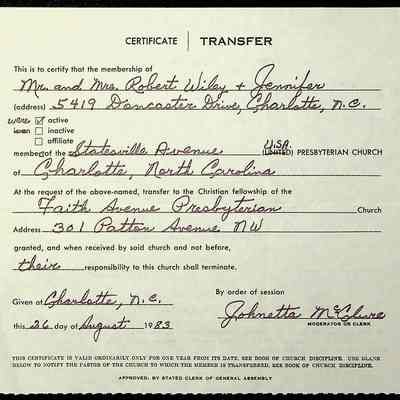 CERTIFICATE | TRANSFER
This is to certify that the membership of
Mr. and Mrs. Robert Wiley + Jennifer
(address) 5419 Doncaster Drive, Charlotte, N.C.
were ☑ active
is an ☐ inactive
☐ affiliate
member of the Statesville Avenue U.S.A. (UNITED) PRESBYTERIAN CHURCH
of Charlotte, North Carolina
At the request of the above-named, transfer to the Christian fellowship of the
Faith Avenue Presbyterian Church
Address 301 Patton Avenue NW
granted, and when received by said church and not before,
their responsibility to this church shall terminate.
Given at Charlotte, N.C.
By order of session
this 26 day of August 1983
Johnetta McClure
MODERATOR OR CLERK
THIS CERTIFICATE IS VALID ORDINARILY ONLY FOR ONE YEAR FROM ITS DATE. SEE BOOK OF CHURCH DISCIPLINE. USE BLANK
BELOW TO NOTIFY THE PASTOR OF THE CHURCH TO WHICH THE MEMBER IS TRANSFERRED, SEE BOOK OF CHURCH DISCIPLINE.
APPROVED: BY STATED CLERK OF GENERAL ASSEMBLY